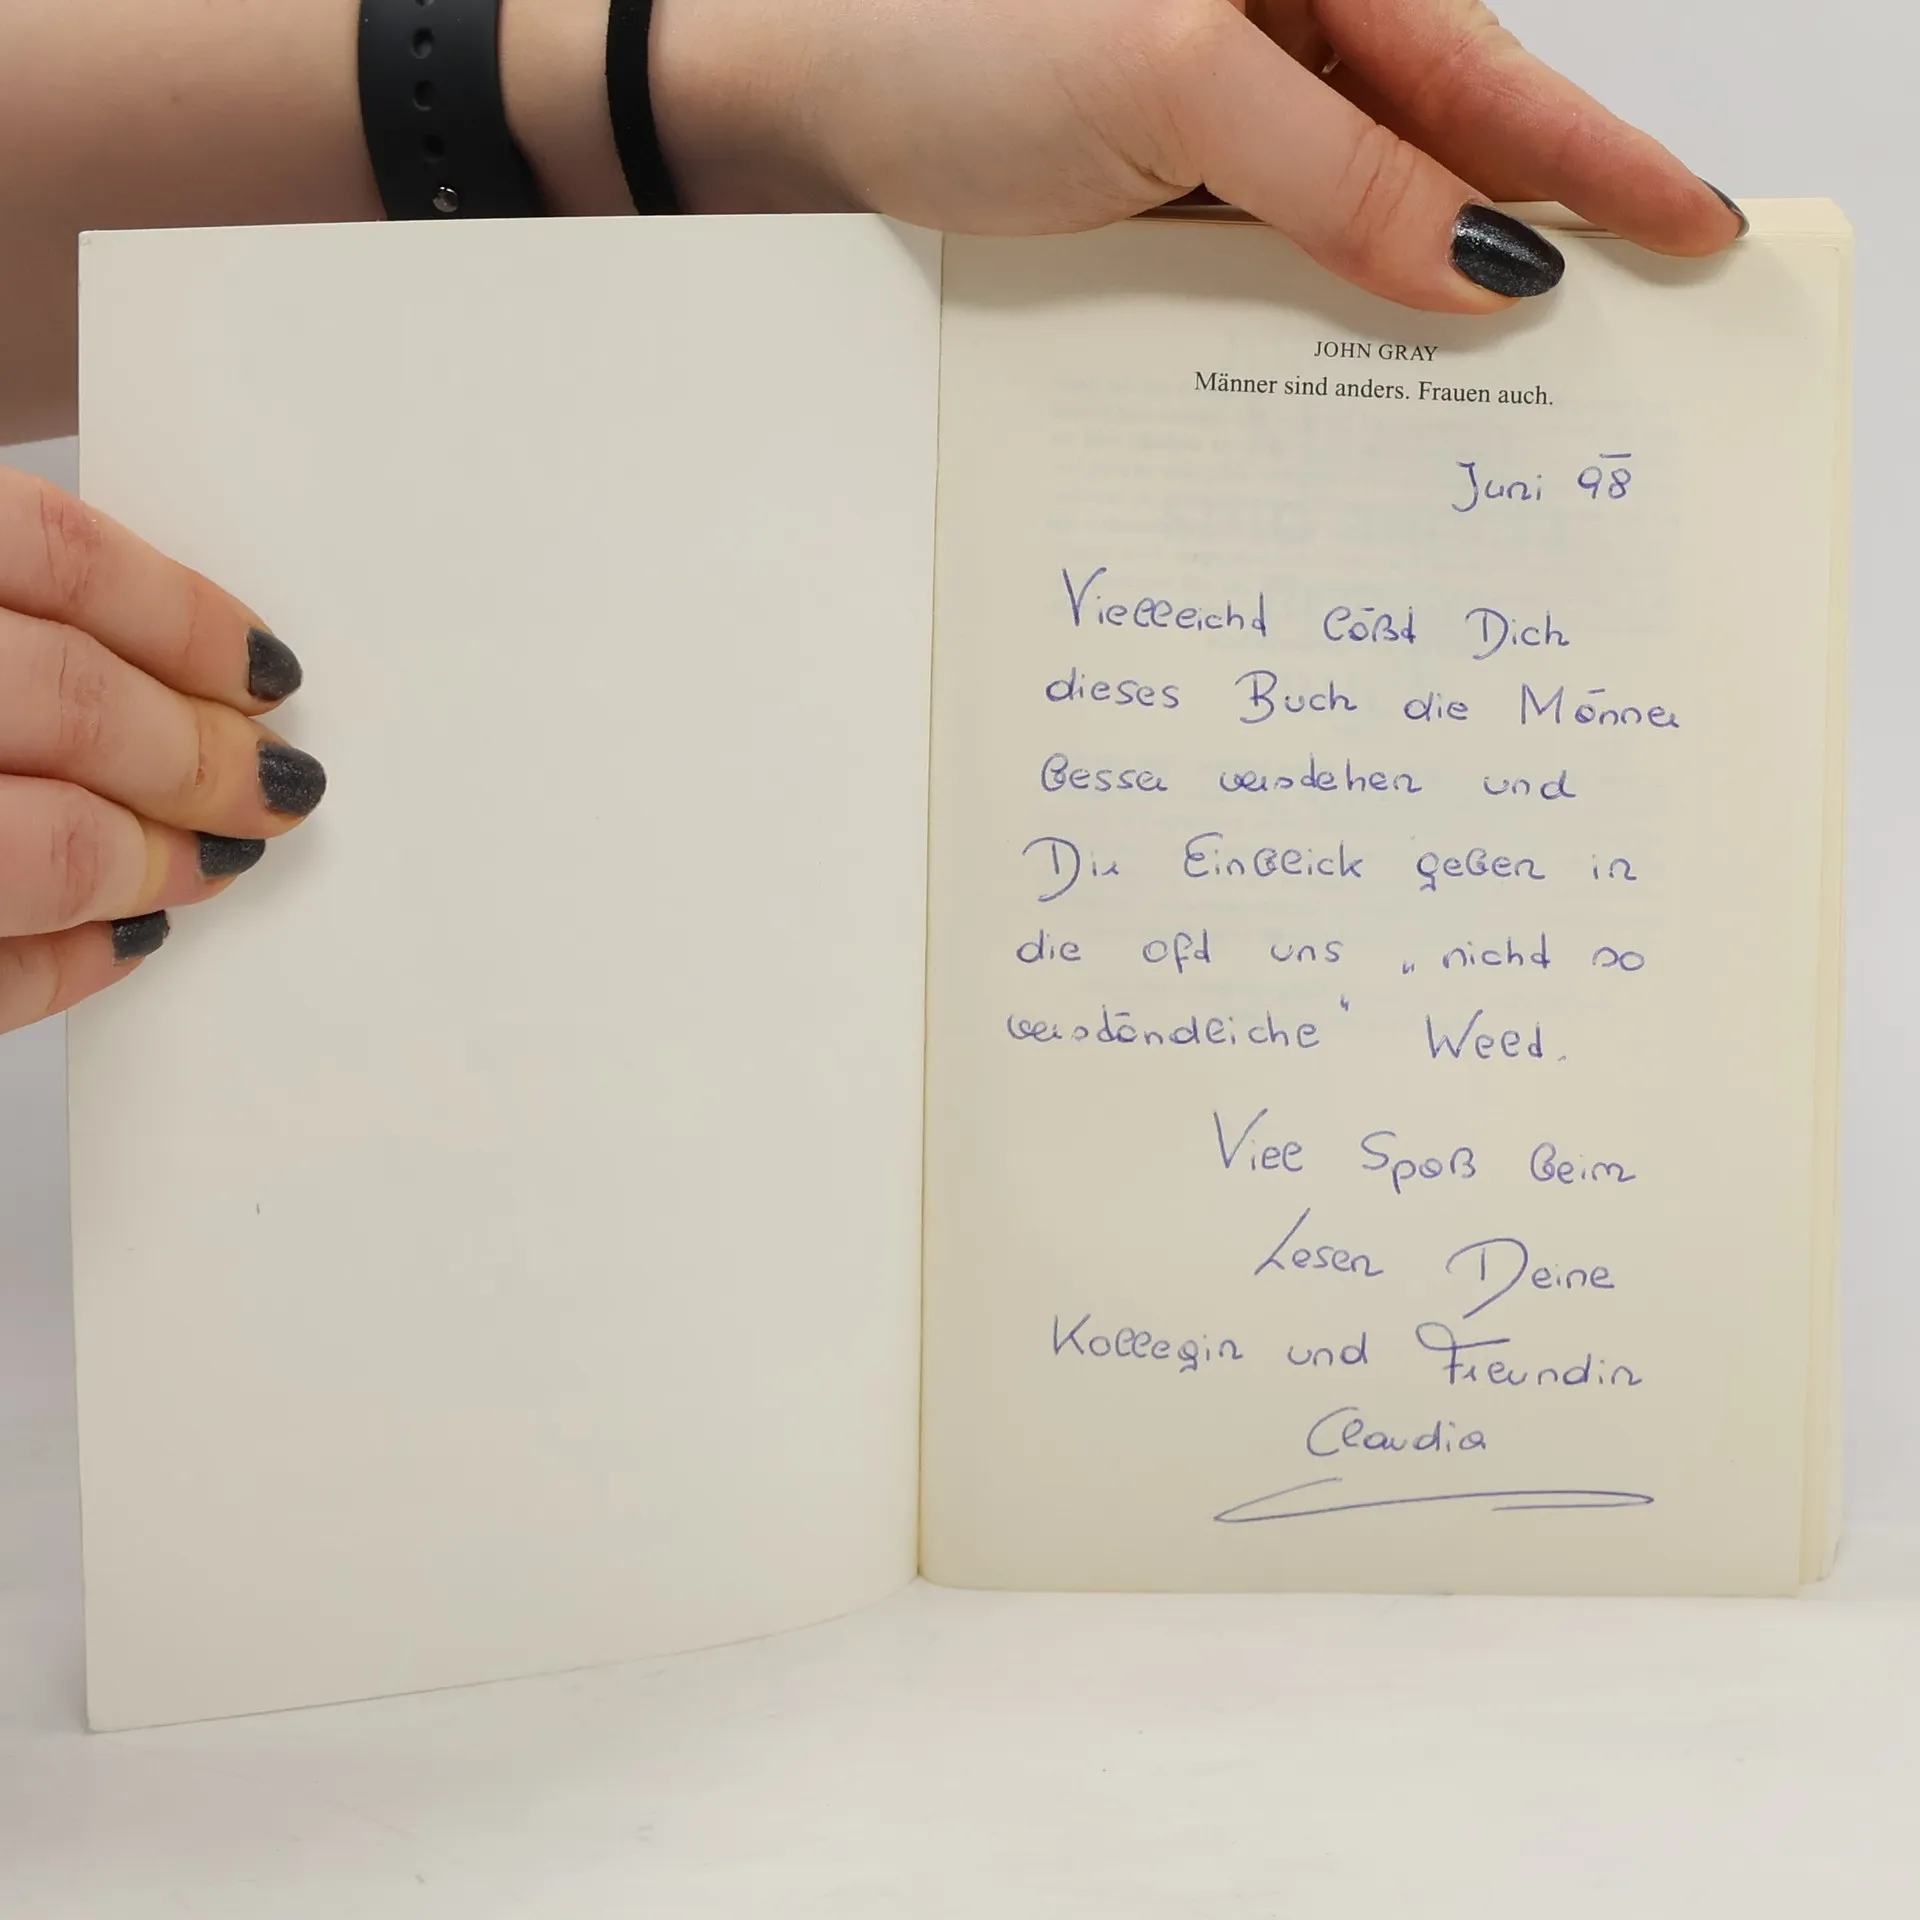 JOHN GRAY
Männer sind anders. Frauen auch.
Juni 98
Vielleicht läßt Dich
dieses Buch die Männer
besser verstehen und
Dir Einblick geben in
die oft uns „nicht so
verständliche" Welt.
Viel Spaß beim
Lesen Deine
Kollegin und Freundin
Claudia